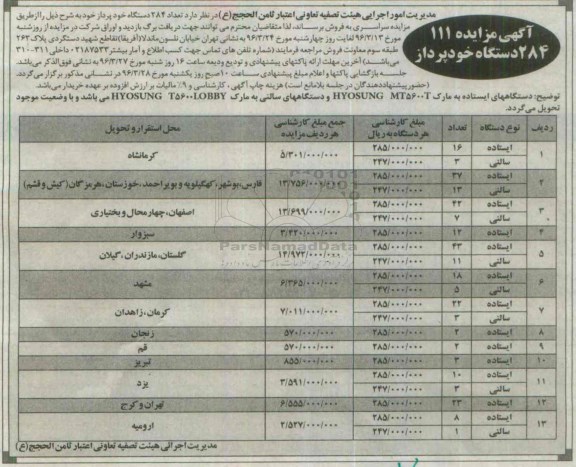 آگهی مزایده ۱۱۱
۲۸۴ دستگاه خودپرداز
مدیریت امور اجرایی هیئت تصفیه تعاونی اعتبار ثامن الحجج(ع) در نظر دارد تعداد ۲۸۴ دستگاه خود پرداز خود به شرح ذیل را از طریق
مزایده سراسری به فروش برساند، لذا متقاضیان محترم می توانند جهت دریافت برگ بازدید و اوراق شرکت در مزایده از روز شنبه
مورخ ۹۶/۳/۱۳ لغایت روز چهارشنبه مورخ ۹۶/۳/۲۴ به نشانی تهران خیابان نلسون ماندلا(آفریقا) تقاطع شهید دستگردی پلاک ۲۶۲
طبقه سوم معاونت فروش مراجعه فرمایند (شماره تلفن های تماس جهت کسب اطلاع و آمار بیشتر ۰۲۱۸۷۵۳۳ داخلی ۳۱۱-۳۱۰
می‌باشند) آخرین مهلت ارائه پاکتهای پیشنهادی و تودیع ودیعه ساعت ۱۶ روز شنبه مورخ ۹۶/۳/۲۷ به نشانی فوق الذکر می باشد.
جلسه بازگشایی پاکتها و اعلام مبلغ پیشنهادی ساعت ۱۰ صبح روز یکشنبه مورخ ۹۶/۳/۲۸ در نشانی مذکور برگزار می گردد.
(حضور پیشنهاددهندگان در جلسه بلامانع است) هزینه چاپ آگهی، کارشناسی و ۹٪ مالیات بر ارزش افزوده بر عهده خریدار می‌باشد.
توضیح: دستگاههای ایستاده به مارک HYOSUNG MT5600T و دستگاههای سالنی به مارک HYOSUNG T5600LOBBY می باشد و با وضعیت موجود
تحویل می گردد.
ردیف نوع دستگاه تعداد مبلغ کارشناسی هر دستگاه به ریال جمع مبلغ کارشناسی هر ردیف مزایده محل استقرار و تحویل
۱ ایستاده ۱۶ ۲۸۵/۰۰۰/۰۰۰ ۵/۳۰۱/۰۰۰/۰۰۰ کرمانشاه
سالنی ۳ ۲۴۷/۰۰۰/۰۰۰
۲ ایستاده ۳۷ ۲۸۵/۰۰۰/۰۰۰ ۱۳/۷۵۶/۰۰۰/۰۰۰ فارس، بوشهر، کهگیلویه و بویراحمد، خوزستان، هرمزگان (کیش و قشم)
سالنی ۱۳ ۲۴۷/۰۰۰/۰۰۰
۳ ایستاده ۴۲ ۲۸۵/۰۰۰/۰۰۰ ۱۳/۶۹۹/۰۰۰/۰۰۰ اصفهان، چهارمحال و بختیاری
سالنی ۷ ۲۴۷/۰۰۰/۰۰۰
۴ ایستاده ۱۲ ۲۸۵/۰۰۰/۰۰۰ ۳/۴۲۰/۰۰۰/۰۰۰ سبزوار
۵ ایستاده ۴۳ ۲۸۵/۰۰۰/۰۰۰ ۱۴/۹۷۲/۰۰۰/۰۰۰ گلستان، مازندران، گیلان
سالنی ۱۱ ۲۴۷/۰۰۰/۰۰۰
۶ ایستاده ۱۸ ۲۸۵/۰۰۰/۰۰۰ ۶/۳۶۵/۰۰۰/۰۰۰ مشهد
سالنی ۵ ۲۴۷/۰۰۰/۰۰۰
۷ ایستاده ۲۲ ۲۸۵/۰۰۰/۰۰۰ ۷/۰۱۱/۰۰۰/۰۰۰ کرمان، زاهدان
سالنی ۳ ۲۴۷/۰۰۰/۰۰۰
۸ ایستاده ۲ ۲۸۵/۰۰۰/۰۰۰ ۵۷۰/۰۰۰/۰۰۰ زنجان
۹ ایستاده ۲ ۲۸۵/۰۰۰/۰۰۰ ۵۷۰/۰۰۰/۰۰۰ قم
۱۰ ایستاده ۳ ۲۸۵/۰۰۰/۰۰۰ ۸۵۵/۰۰۰/۰۰۰ تبریز
۱۱ ایستاده ۱۰ ۲۸۵/۰۰۰/۰۰۰ ۳/۵۹۱/۰۰۰/۰۰۰ یزد
سالنی ۳ ۲۴۷/۰۰۰/۰۰۰
۱۲ ایستاده ۲۳ ۲۸۵/۰۰۰/۰۰۰ ۶/۵۵۵/۰۰۰/۰۰۰ تهران و کرج
۱۳ ایستاده ۸ ۲۸۵/۰۰۰/۰۰۰ ۲/۵۲۷/۰۰۰/۰۰۰ ارومیه
سالنی ۱ ۲۴۷/۰۰۰/۰۰۰
ParsNamadData
مدیریت اجرائی هیئت تصفیه تعاونی اعتبار ثامن الحجج (ع)